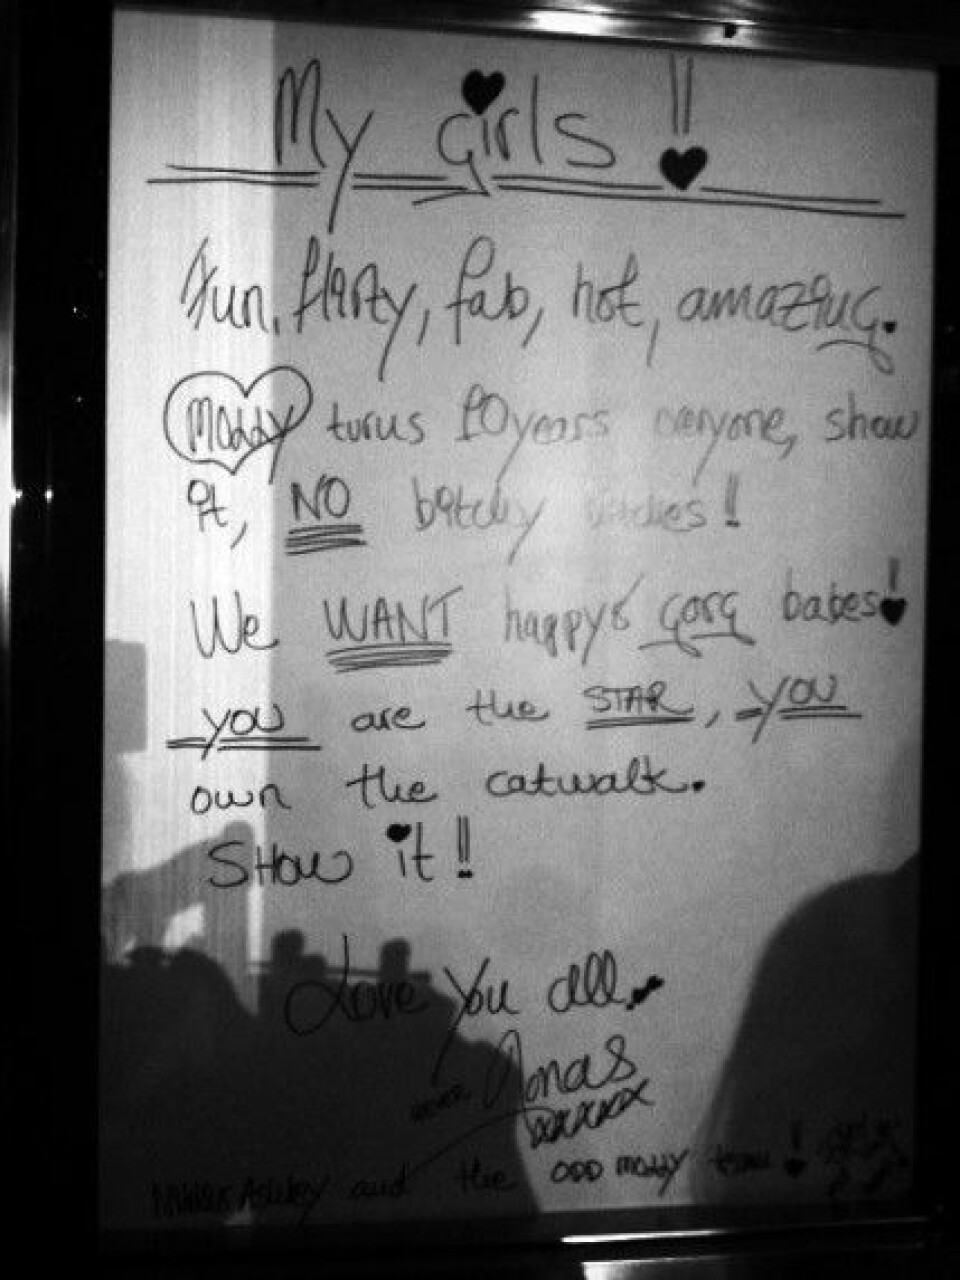 My girls !!
Fun, flirty, fab, hot, amazing.
Molly turns 10years everyone, show
it, NO bitchy bitches!
We WANT happy & gorg babes!
you are the STAR, you
own the catwalk.
SHOW it!!
Love You all
Jonas
xxxxxx
Ashley and the ODD MOLLY team!